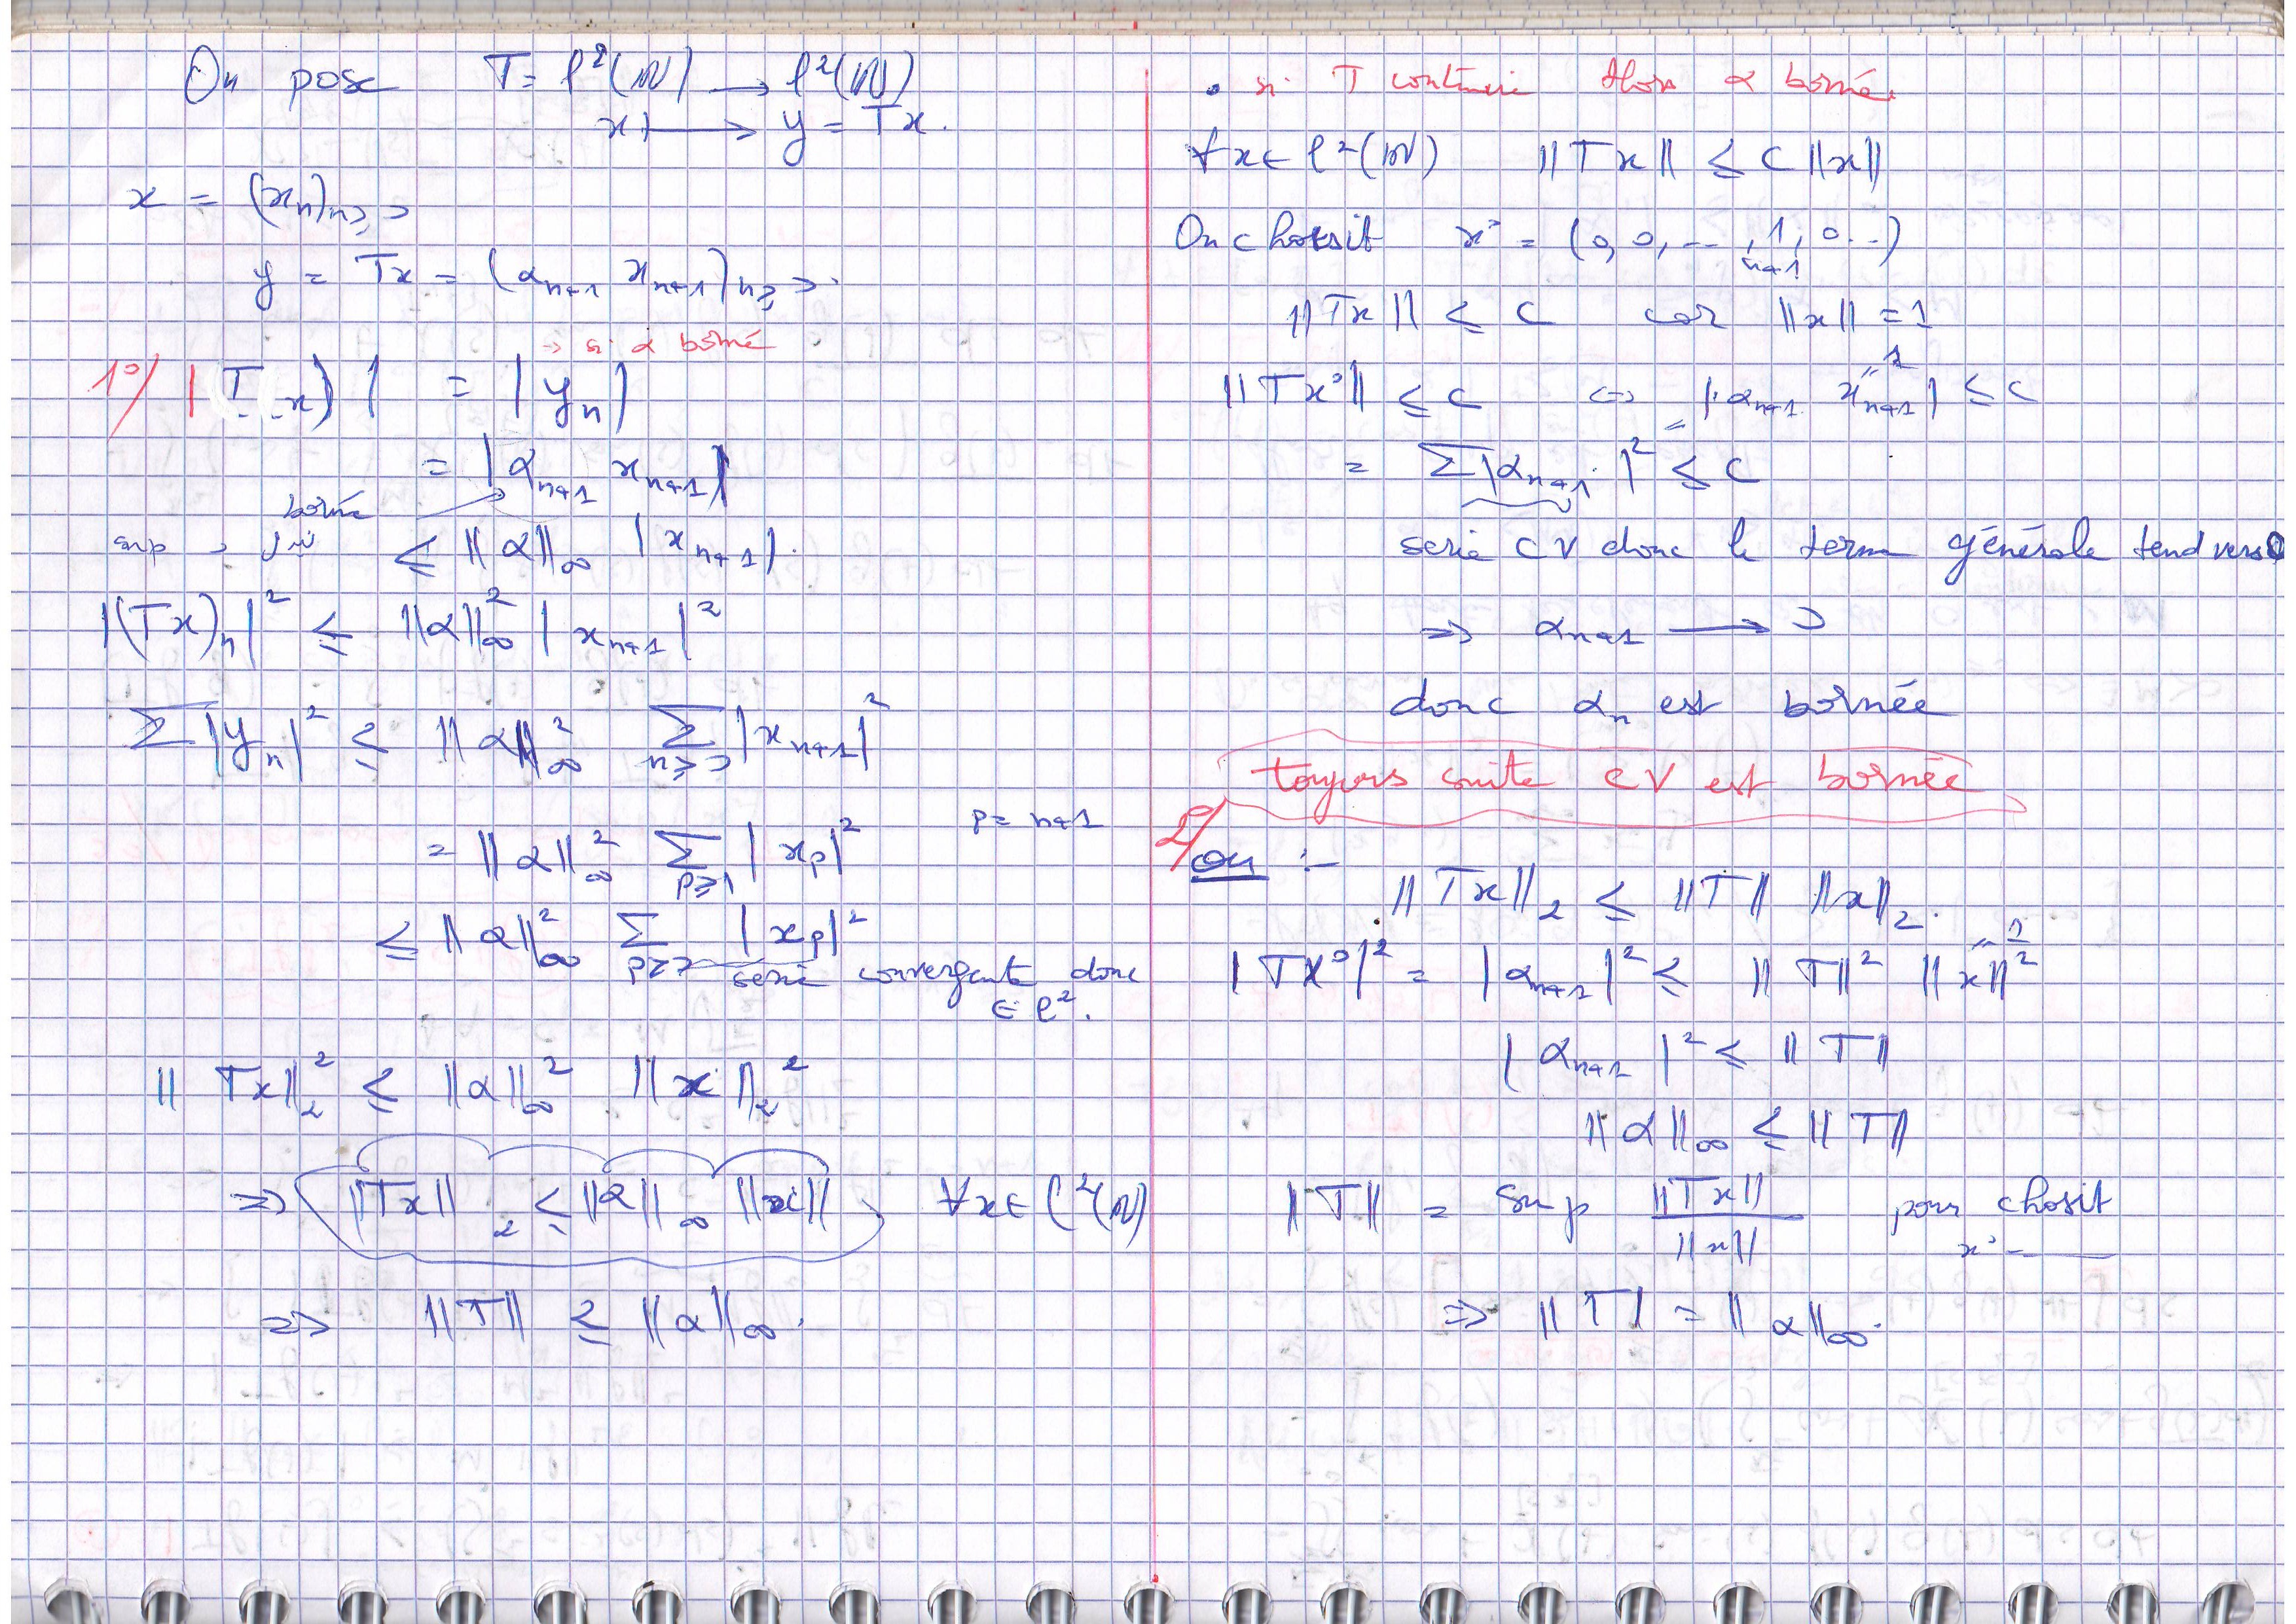 On pose T = ℓ²(ℕ) → ℓ²(ℕ)
x ↦ y = Tx.
x = (xₙ)ₙ≥₀
y = Tx = (αₙ₊₁ xₙ₊₁)ₙ≥₀.
→ si α borné
1°/ |(Tx)| = |yₙ|
= |αₙ₊₁ xₙ₊₁|
borné
sup
≤ ‖α‖∞ |xₙ₊₁|.
|(Tx)ₙ|² ≤ ‖α‖∞² |xₙ₊₁|²
Σ|yₙ|² ≤ ‖α‖∞² Σₙ≥₀ |xₙ₊₁|²
= ‖α‖∞² Σp≥1 |xp|² p = n+1
≤ ‖α‖∞² Σp≥0 |xp|²
serie convergente donc
∈ ℓ².
‖Tx‖₂² ≤ ‖α‖∞² ‖x‖₂²
⇒ ‖Tx‖₂ ≤ ‖α‖∞ ‖x‖ ∀x ∈ ℓ²(ℕ)
⇒ ‖T‖ ≤ ‖α‖∞.
• si T continue alors α borné.
∀x ∈ ℓ²(ℕ) ‖Tx‖ ≤ C ‖x‖
On choisit x° = (0, 0, --, 1, 0..)
n+1
‖Tx‖ ≤ C car ‖x‖ = 1
‖Tx°‖ ≤ C ⇔ |αₙ₊₁ x°ₙ₊₁| ≤ C
1
= Σ|αₙ₊₁|² ≤ C
serie CV donc le term générale tend vers 0
⇒ αₙ₊₁ → 0
donc αₙ est bornée
toujors suite CV est bornée
2°/ ou :-
‖Tx‖₂ ≤ ‖T‖ ‖x‖₂.
|Tx°|² = |αₙ₊₁|² ≤ ‖T‖² ‖x‖²
1
|αₙ₊₁|² ≤ ‖T‖
‖α‖∞ ≤ ‖T‖
‖T‖ = Sup ‖Tx‖ / ‖x‖ pour chosit
x° —
⇒ ‖T‖ = ‖α‖∞.